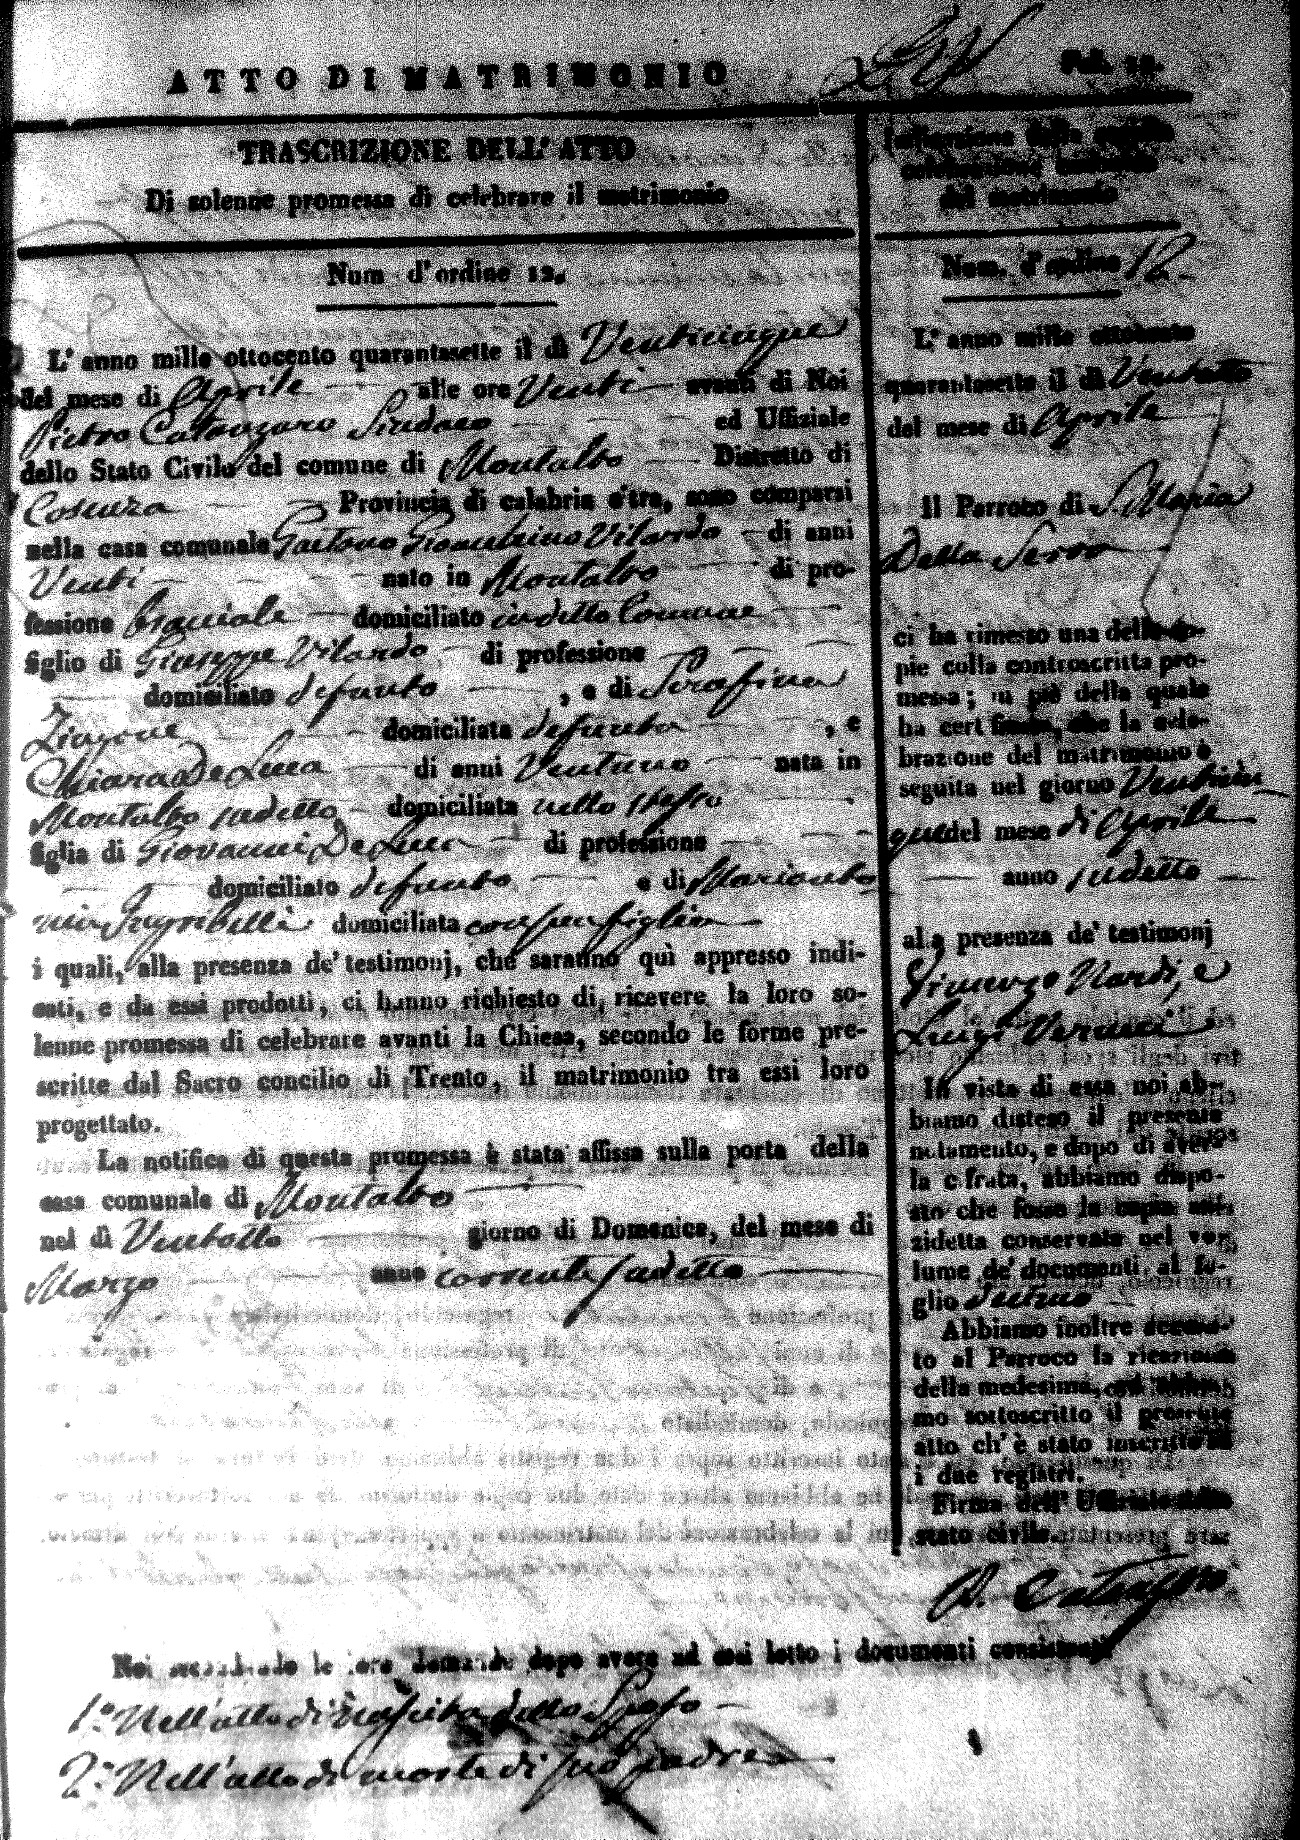 ATTO DI MATRIMONIO
Fol. 12.
TRASCRIZIONE DELL' ATTO
Di solenne promessa di celebrare il matrimonio
Num d'ordine 12.
L'anno mille ottocento quarantasette il dì Venticinque
del mese di Aprile alle ore Venti avanti di Noi
Pietro Catanzaro Sindaco ed Uffiziale
dello Stato Civile del comune di Montalto Distretto di
Cosenza Provincia di calabria citra, sono comparsi
nella casa comunale Gaetano Vilardo di anni
Venti nato in Montalto di pro-
fessione bracciale domiciliato in detto Comune
figlio di Giuseppe Vilardo di professione
domiciliato defunto , e di Serafina
domiciliata defunta , e
Chiara De Luca di anni Ventuno nata in
Montalto sudetto domiciliata nello stesso
figlia di Giovanni De Luca di professione
domiciliato defunto e di Marianto
nia domiciliata figlia
i quali, alla presenza de' testimonj, che saranno quì appresso indi-
cati, e da essi prodotti, ci hanno richiesto di, ricevere la loro so-
lenne promessa di celebrare avanti la Chiesa, secondo le forme pre-
scritte dal Sacro concilio di Trento, il matrimonio tra essi loro
progettato.
La notifica di questa promessa è stata affissa sulla porta della
casa comunale di Montalto
nel dì Ventotto giorno di Domenica, del mese di
Marzo anno corrente sudetto
della
celebrazione
del matrimonio
Num. d'ordine 12.
L'anno mille ottocento
quarantasette il dì Ventotto
del mese di Aprile
Il Parroco di S. Maria
Della Serra
ci ha rimesso una delle co-
pie colla controscritta pro-
messa; in piè della quale
ha cert che la cele-
brazione del matrimonio è
seguita nel giorno Venticin
que del mese di Aprile
anno sudetto
alla presenza de' testimonj
Nardi, e
Luigi
In vista di essa noi ab-
biamo disteso il presente
notamento, e dopo di averlo
la cifrata, abbiamo dispo-
sto che fosse la copia an-
zidetta conservata nel vo-
lume de' documenti al fo-
glio
Abbiamo inoltre accusa-
to al Parroco la ricezione
della medesima, ed abbia-
mo sottoscritto il presente
atto ch' è stato inscritto su
i due registri.
Firma dell' Uffiziale dello
stato civile.
P. Catanzaro
Noi le loro domande dopo avere ad essi letto i documenti consistenti
1.° Nell'atto di nascita dello Sposo
2.° Nell'atto di morte di suo padre